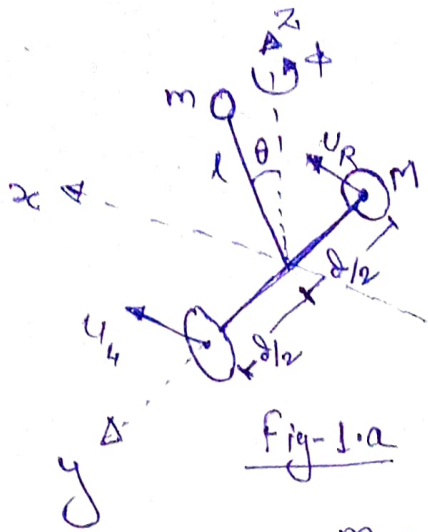 z
φ
m
θ
l
U_R
M
x
d/2
U_L
d/2
Fig-1.a
y